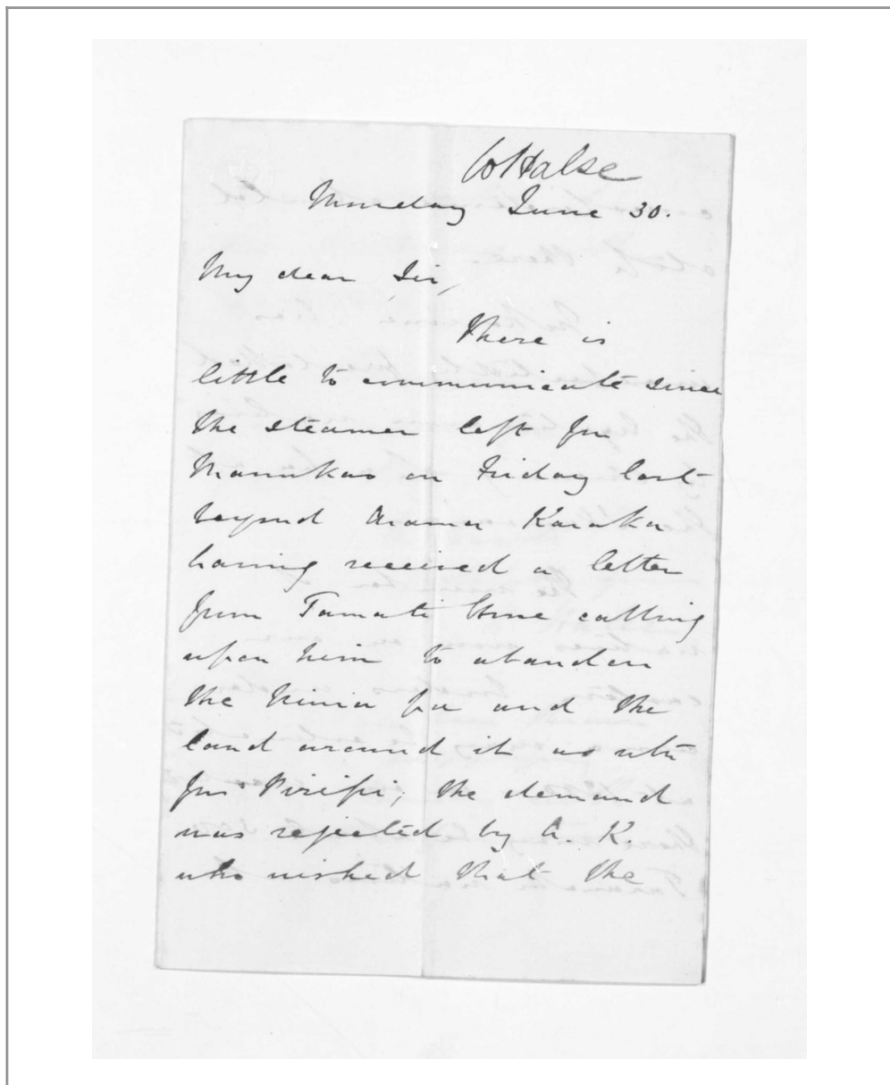 W Halse
Monday June 30.
My dear Sir,
There is
little to communicate since
the steamer left for
Manukao on Friday last
beyond Arama Karaka
having received a letter
from Tamati Hone calling
upon him to abandon
the Ninia pa and the
land around it as utu
for Piripi; the demand
was rejected by A. K.
who wished that the